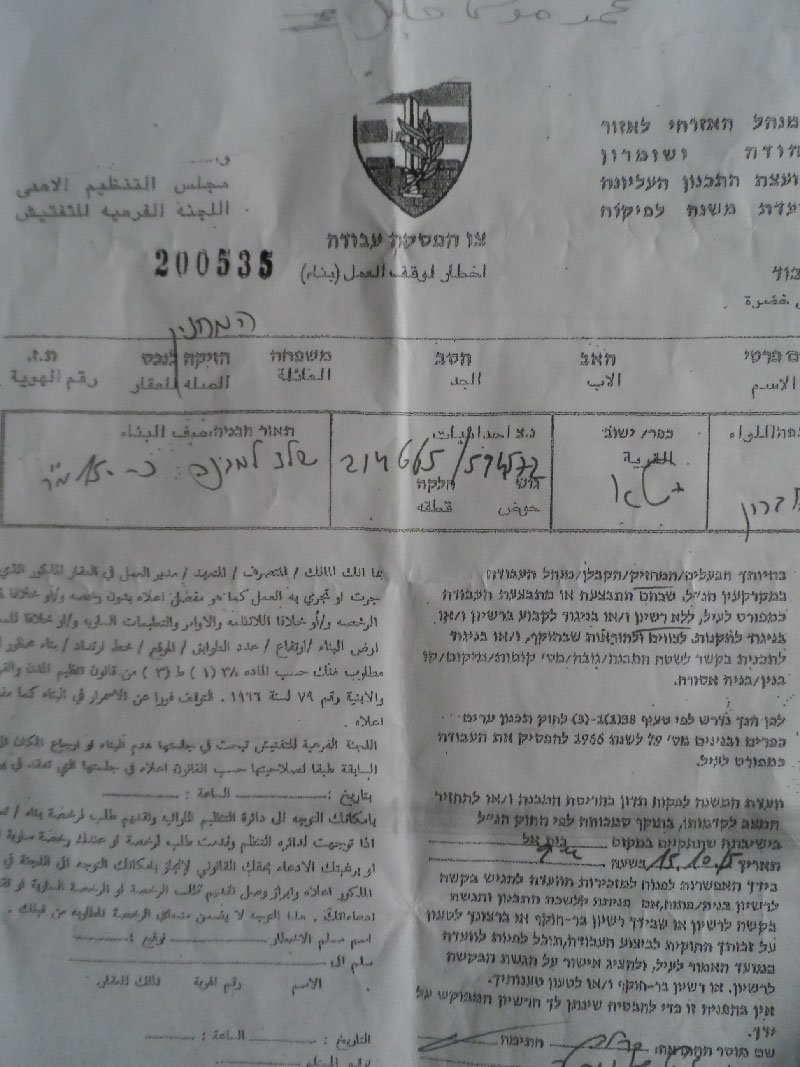 מנהל האזרחי לאזור
הודה ושומרון
ועצת התכנון העליונה
ועדת משנה לפיקוח
مجلس التنظيم الاعلى
اللجنه الفرعيه للتفتيش
צו הפסקת עבודה
اخطار لوقف العمل (بناء)
200535
המחזיק
ם פרטי האב הסב משפחה הזיקה לנכס ת.ז.
الاسم الاب الجد العائلة الصله للعقار رقم الهوية
כפר/ישוב
القرية
נ.צ احداثيات
214665/594572
גוש חלקה
حوض قطعه
תאור הבניה/صيف البناء
חברון
בהיותך הבעלים/המחזיק/הקבלן/מנהל העבודה
במקרקעין הנ"ל, שבהם התבצעה או מתבצעת העבודה
כמפורט לעיל, ללא רשיון ו/או בניגוד לקבוע ברשיון ו/או
בניגוד לתקנות, לצווים ולהוראות שבתוקף, ו/או בניגוד
לתכנית בקשר לשטח המבנה/גובה/מס' קומות/מיקום/קו
בנין/בניה אסורה.
לכן הנך נדרש לפי סעיף 38(1)-(3) לחוק תכנון ערים
כפרים ובנינים מס' 79 לשנת 1966 להפסיק את העבודה
כמפורט לעיל.
ועדת המשנה לפקוח תדון בהריסת המבנה ו/או להחזיר
המצב לקדמותו, בתוקף סמכותה לפי החוק הנ"ל
בישיבתה שתתקיים במקום בית אל
תאריך 15.10.15 בשעה
בידך האפשרות לפנות למזכירות הועדה להגיש בקשה
לרשיון בניה/פתוח, אם פנית ללשכת התכנון והגשת
בקשה לרשיון או שבידך רשיון בר-תוקף או ברצונך לטעון
על זכותך החוקית לביצוע העבודה, תוכל לפנות לועדה
במועד האמור לעיל, ולהציג אישור על הגשת הבקשה
לרשיון, או רשיון בר-תוקף ו/או לטעון טענותיך.
אין בהפניה זו כדי להבטיח שינתן לך הרשיון המבוקש על
ידך.
שם מוסר ההתראה: חתימה
بما انك المالك / المتصرف / المتعهد / مدير العمل في العقار المذكور الذي
جرت او تجري به العمل كما هو مفصل اعلاه بدون رخصه و/او خلافا
الرخصه و/او خلافا للانظمه والاوامر والتعليمات الساريه و/او خلافا
ارض البناء /ارتفاع / عدد الطوابق / الموقع / خط ارتداد / بناء محظور
مطلوب منك حسب الماده ٣٨ (١) ط (٣) من قانون تنظيم المدن
والابنية رقم ٧٩ لسنة ١٩٦٦ . التوقف فورا عن الاستمرار في البناء كما
اعلاه .
اللجنه الفرعيه للتفتيش تبحث في جلستها هدم البناء او ارجاع المكان
السابقة طبقا لصلاحيتها حسب القانون اعلاه في جلستها التي تعقد في
بتاريخ : الساعة :
بامكانك التوجه الى دائرة التنظيم وتقديم طلب لرخصة بناء /
اذا توجهت لدائره التنظيم وقدمت طلب لرخصة او عندك رخصة سارية
او برغبتك الادعاء بحقك القانوني لانجاز بامكانك التوجه الى اللجنة في
المذكور اعلاه وابراز وصل تقديم طلب الرخصة او الرخصة السارية او
ادعاءاتك . هذا التوجه لا يضمن منحك الرخصة المطلوبه من قبلك .
اسم مسلم الاخطار توقيع :
سلم الى
الاسم رقم الهوية
التاريخ : الساعة :